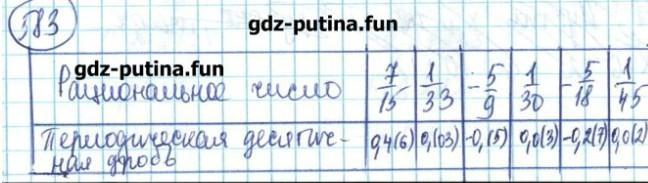 583
gdz-putina.fun
gdz-putina.fun
Рациональное число 7/15 1/33 -5/9 1/30 -5/18 1/45
Периодическая десятич-
ная дробь 0,4(6) 0,(03) -0,(5) 0,0(3) -0,2(7) 0,0(2)